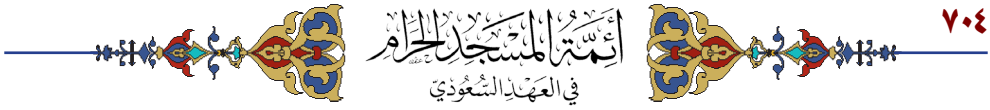 ٧٠٤
أَئِمَّةُ المَسْجِدِ الحَرَامِ
فِي العَهْدِ السُّعُودِيّ